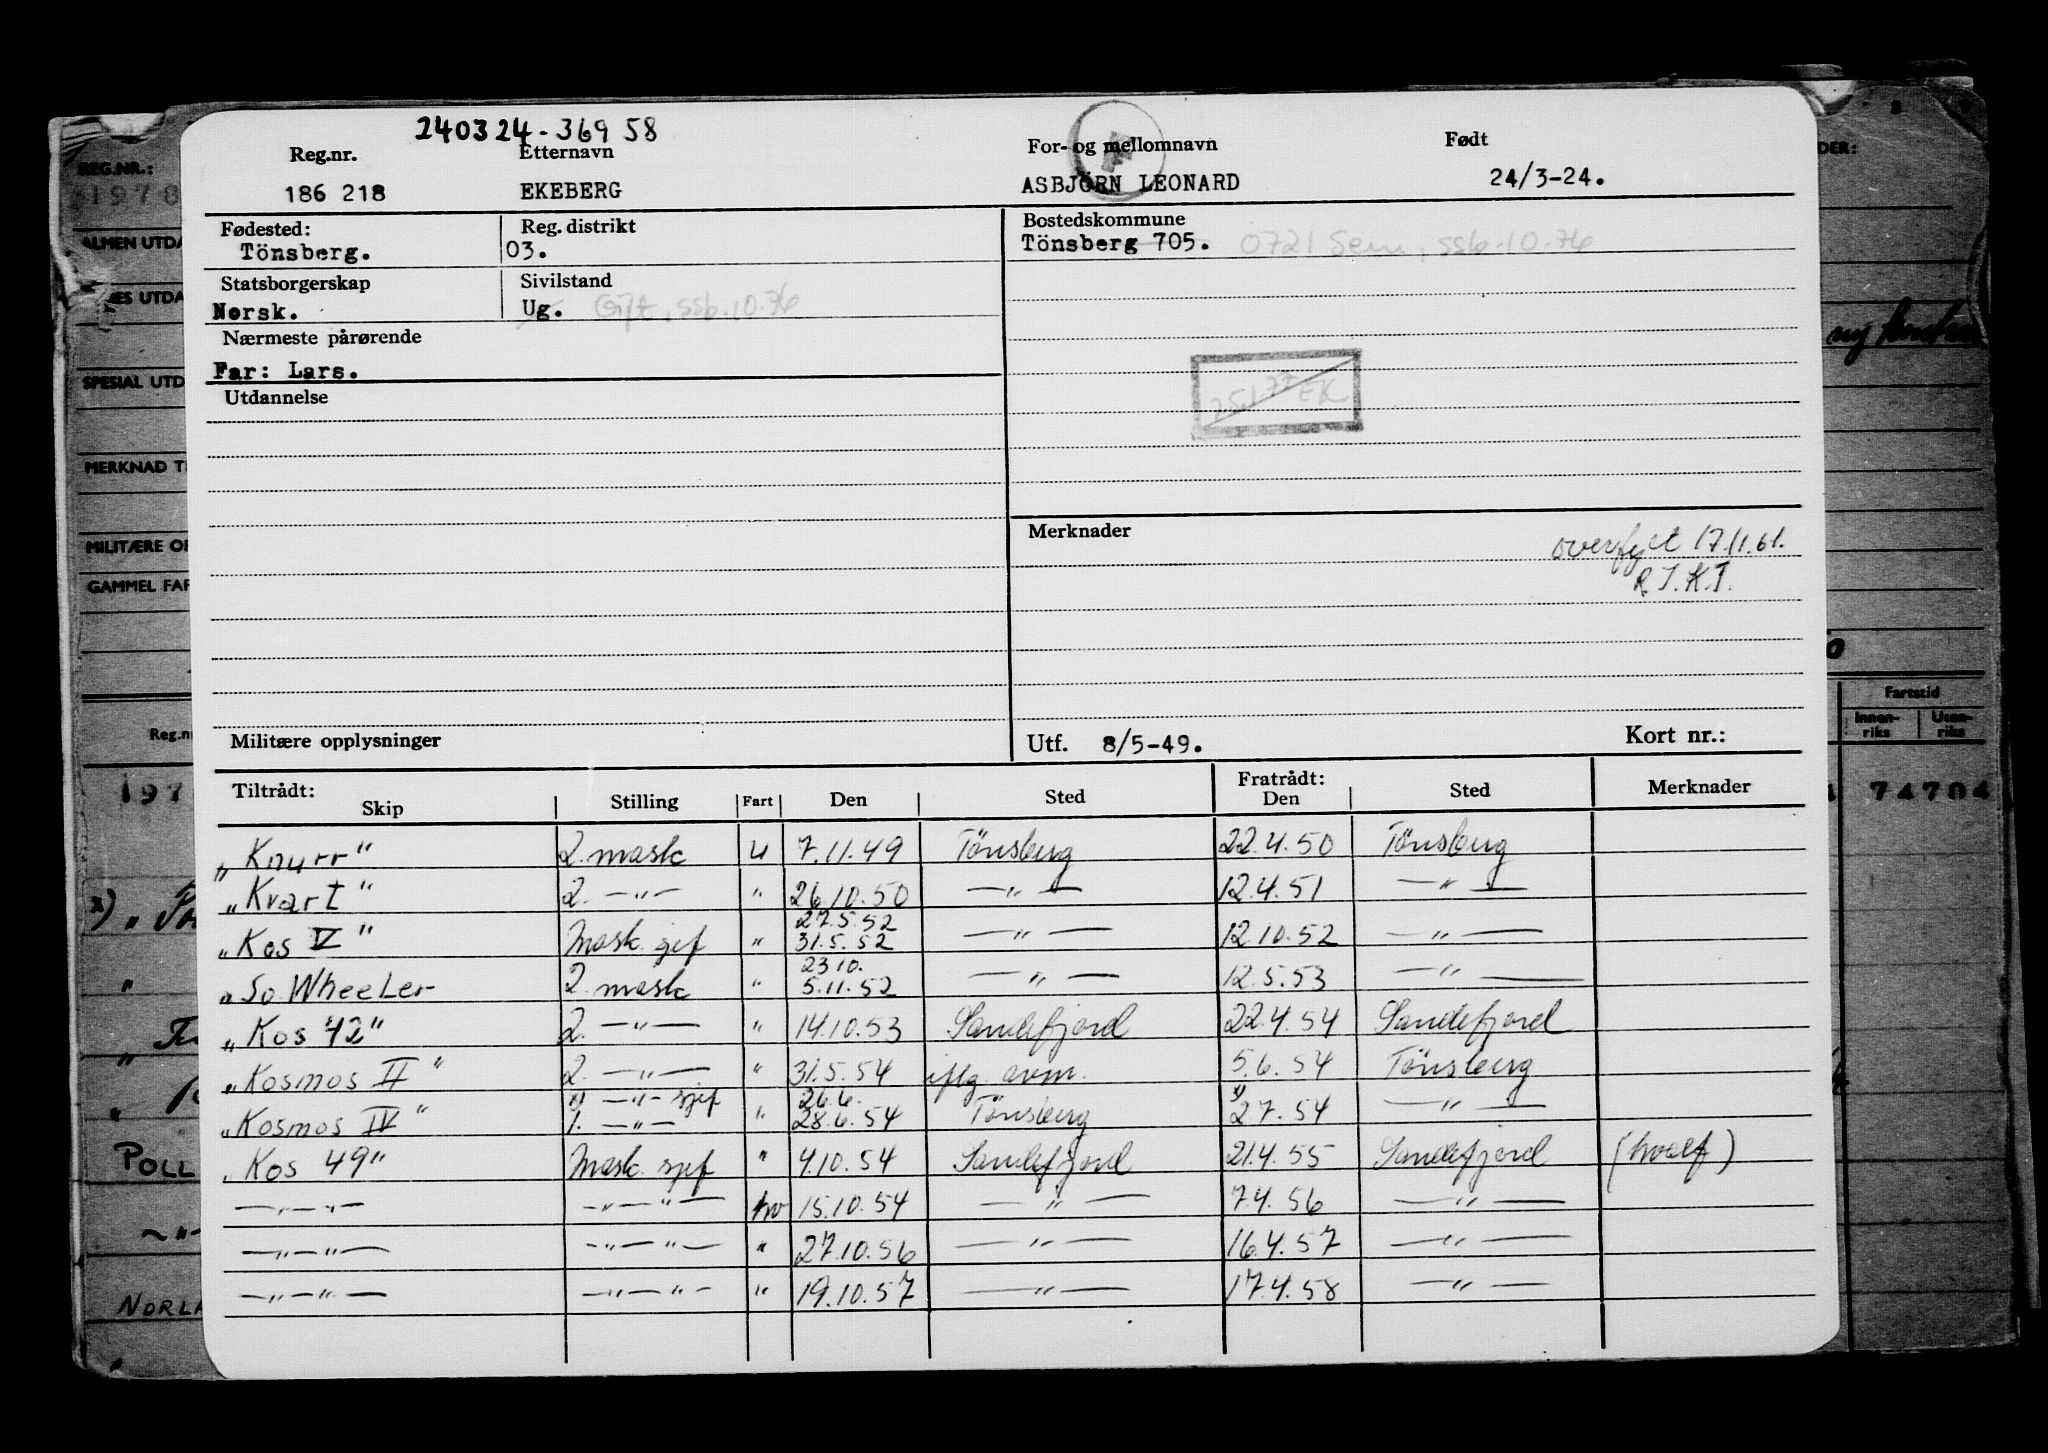 240324-36958
Reg.nr. Etternavn For- og mellomnavn Født
186 218 EKEBERG ASBJÖRN LEONARD 24/3-24.
Fødested: Reg. distrikt Bostedskommune
Tönsberg. 03. Tönsberg 705. 0721 Sem, ssb. 10-76
Statsborgerskap Sivilstand
Norsk. Ug. Gift, ssb. 10.76
Nærmeste pårørende
Far: Lars.
Utdannelse
EK
Merknader
overført 17/11.61.
R.T.K.T.
Militære opplysninger Utf. 8/5-49. Kort nr.:
Tiltrådt: Fratrådt:
Skip Stilling Fart Den Sted Den Sted Merknader
"Knurr" 2. mask U 7.11.49 Tönsberg 22.4.50 Tönsberg
"Kvart" 2. —"— " 26.10.50 —"— 12.4.51 —"—
27.5.52
"Kos V" Mask. sjef " 31.5.52 —"— 12.10.52 —"—
23 10.
"So. Wheeler 2 mask " 5.11.52 —"— 12.5.53 —"—
"Kos 42" 2. —"— " 14.10.53 Sandefjord 22.4.54 Sandefjord
"Kosmos II" 2. —"— " 31.5.54 iflg. avm. 5.6.54 Tönsberg
x) —"— sjef 26.6. x)
"Kosmos IV" 1. —"— " 28.6.54 Tönsberg 2.7.54 —"—
"Kos 49" Mask. sjef " 4.10.54 Sandefjord 21.4.55 Sandefjord (hvalf)
—"—"— —"—"— hv 15.10.54 —"— 7.4.56 —"—
—"—"— —"—"— " 27.10.56 —"— 16.4.57 —"—
—"—"— —"—"— " 19.10.57 —"— 17.4.58 —"—
REG.NR.:
1978
ALMEN UTDA
ES UTDA
SPESIAL UTD
MERKNAD T
MILITÆRE OP
GAMMEL FAR
Reg.nr
197
x)
POLL
NORLA
DER:
ny
Fartstid
Innen-
riks
Uten-
riks
74704